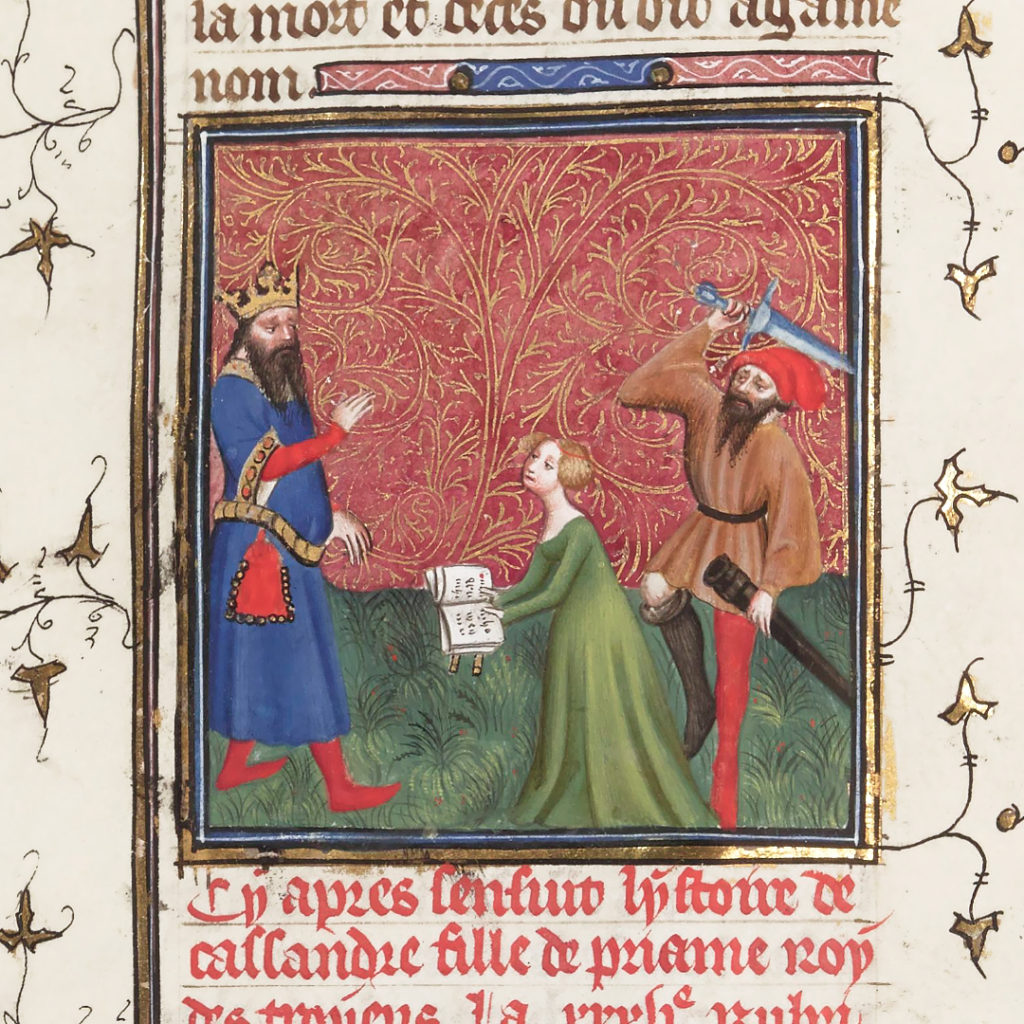 la mort et deces du dit agame
nom
Cy apres sensuit lystoire de
cassandre fille de priame roy
des troyens La